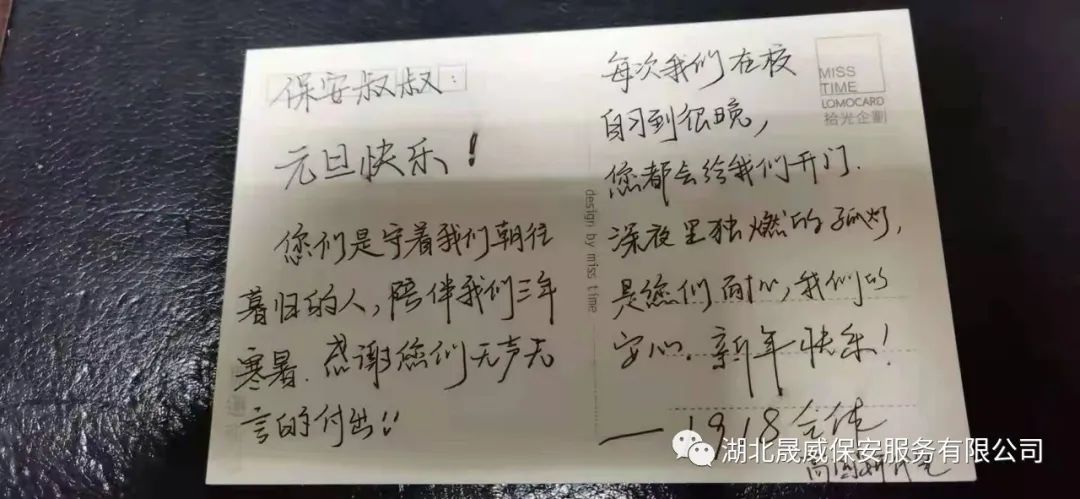 保安叔叔：
元旦快乐！
您们是守着我们朝往
暮归的人，陪伴我们三年
寒暑．感谢您们无声无
言的付出！！
每次我们在校
自习到很晚，
您都会给我们开门．
深夜里独燃的孤灯，
是您们耐心，我们的
安心．新年快乐！
—1918全体
MISS
TIME
LOMOCARD
拾光企劃
design by miss time
湖北晟威保安服务有限公司